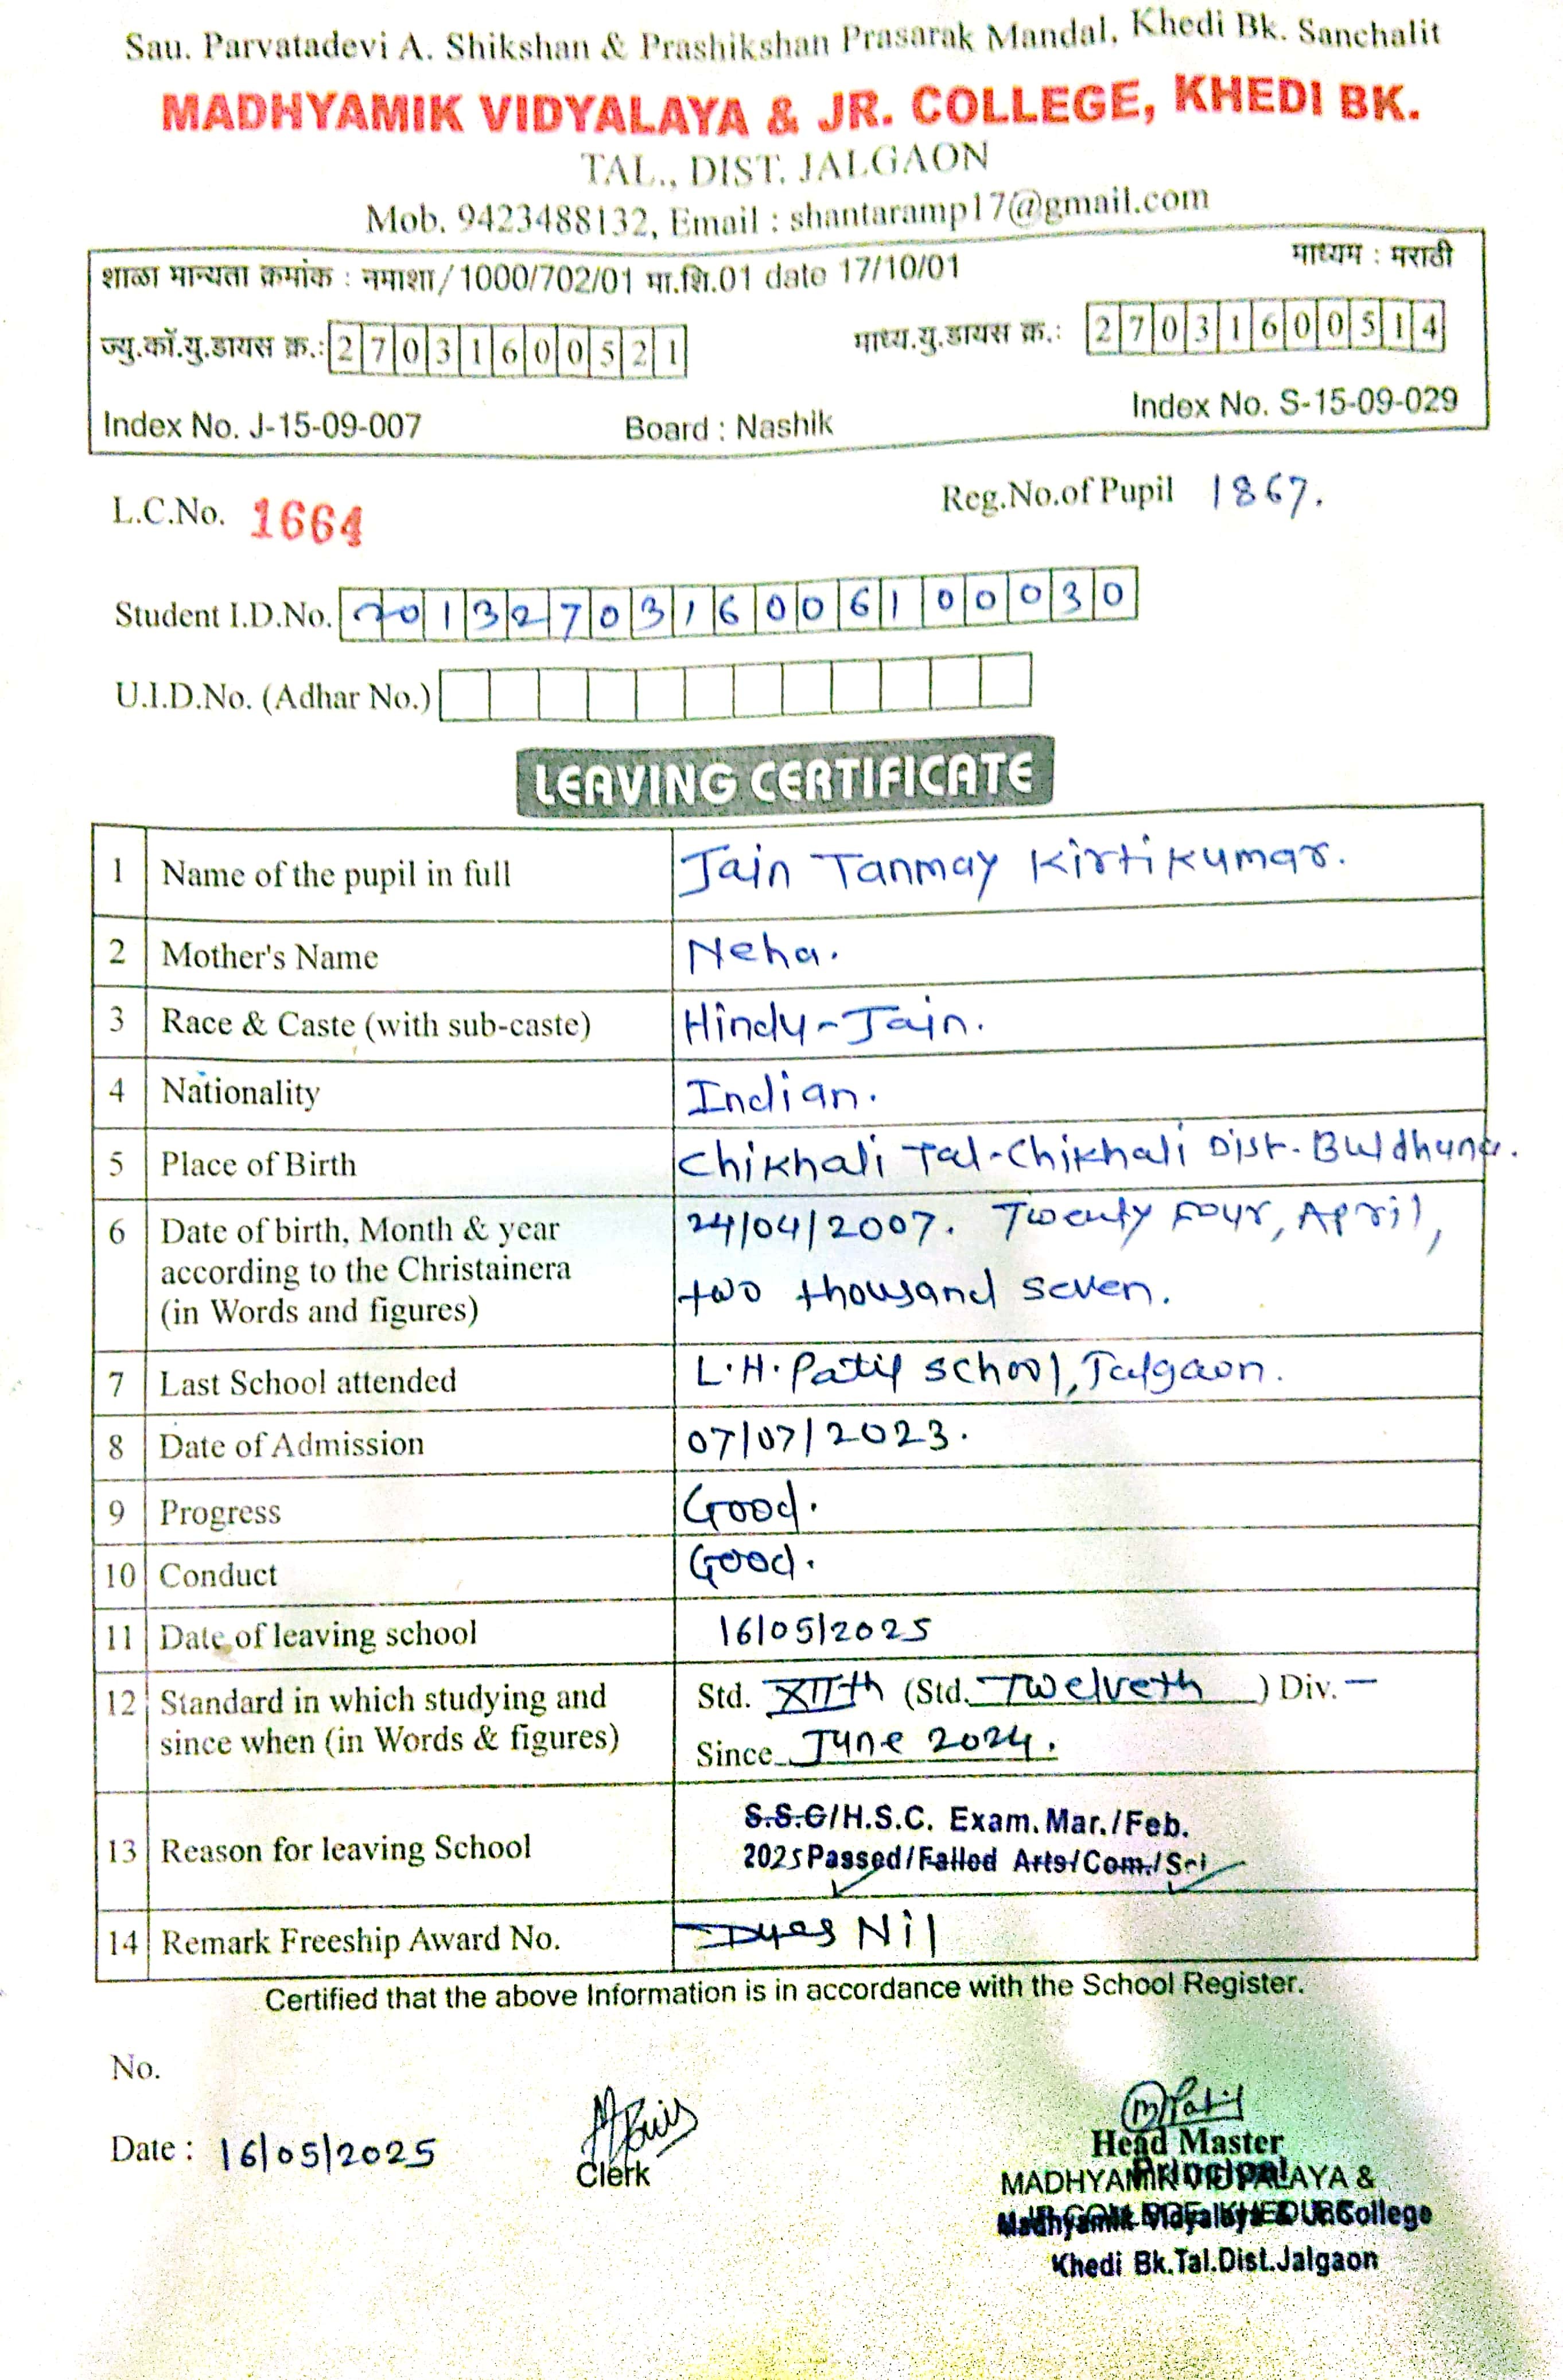 Sau. Parvatadevi A. Shikshan & Prashikshan Prasarak Mandal, Khedi Bk. Sanchalit
MADHYAMIK VIDYALAYA & JR. COLLEGE, KHEDI BK.
TAL., DIST. JALGAON
Mob. 9423488132, Email : shantaramp17@gmail.com
शाळा मान्यता क्रमांक : नमाशा/1000/702/01 मा.शि.01 date 17/10/01 माध्यम : मराठी
ज्यु.कॉ.यु.डायस क्र.: 27031600521 माध्य.यु.डायस क्र.: 27031600514
Index No. J-15-09-007 Board : Nashik Index No. S-15-09-029
L.C.No. 1664 Reg.No.of Pupil 1867.
Student I.D.No. 2013270316006100030
U.I.D.No. (Adhar No.)
LEAVING CERTIFICATE
1 Name of the pupil in full Jain Tanmay Kirtikumar.
2 Mother's Name Neha.
3 Race & Caste (with sub-caste) Hindu-Jain.
4 Nationality Indian.
5 Place of Birth Chikhali Tal-Chikhali Dist. Buldhana.
6 Date of birth, Month & year 24/04/2007. Twenty Four, April,
according to the Christainera two thousand seven.
(in Words and figures)
7 Last School attended L.H. Patil School, Jalgaon.
8 Date of Admission 07/07/2023.
9 Progress Good.
10 Conduct Good.
11 Date of leaving school 16/05/2025
12 Standard in which studying and Std. XIIth (Std. Twelveth ) Div. —
since when (in Words & figures) Since June 2024.
13 Reason for leaving School S.S.C/H.S.C. Exam. Mar./Feb.
2025 Passed/Failed Arts/Com./Sci
14 Remark Freeship Award No. Dues Nil
Certified that the above Information is in accordance with the School Register.
No.
Date : 16/05/2025
Clerk
Head Master
Principal
MADHYAMIK VIDYALAYA &
Madhyamik Vidyalaya & Jr. College
Khedi Bk.Tal.Dist.Jalgaon